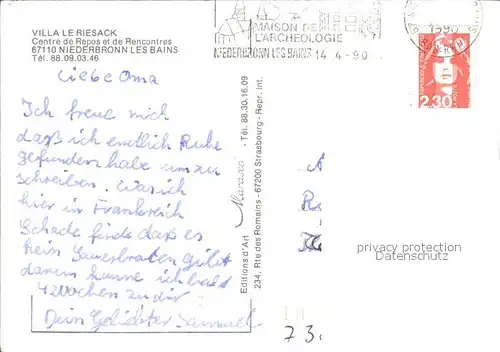 VILLA LE RIESACK
Centre de Repos et de Rencontres
67110 NIEDERBRONN LES BAINS
Tél. 88.09.03.46
MAISON DE
L'ARCHEOLOGIE
NIEDERBRONN LES BAINS 14-4-90
1990
2,30
Liebe Oma
Ich freue mich
daß ich endlich Ruhe
gefunden habe um zu
schreiben. Was ich
hier in Frankreich
Schade finde daß es
kein Sauerbraten gibt
darum komme ich bald
4 Wochen zu dir
Dein Geliebter Samuel
Editions d'Art - Tél. 88.30.16.09
234, Rte des Romains - 67200 Strasbourg - Repr. Int.
A
R
privacy protection
Datenschutz
73.